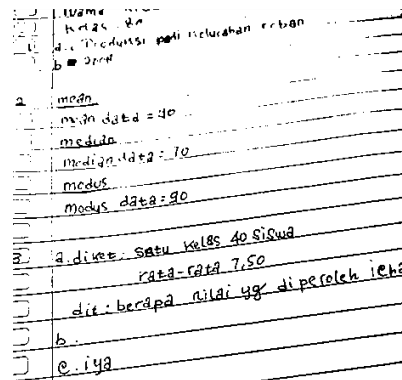 Nama
Kelas
1 a. Produksi padi
b
2 mean
mean data = 40
median
median data = 70
modus
modus data = 90
3 a. diket: satu kelas 40 siswa
rata-rata 7,50
dit: berapa nilai yg diperoleh
b.
c. iya